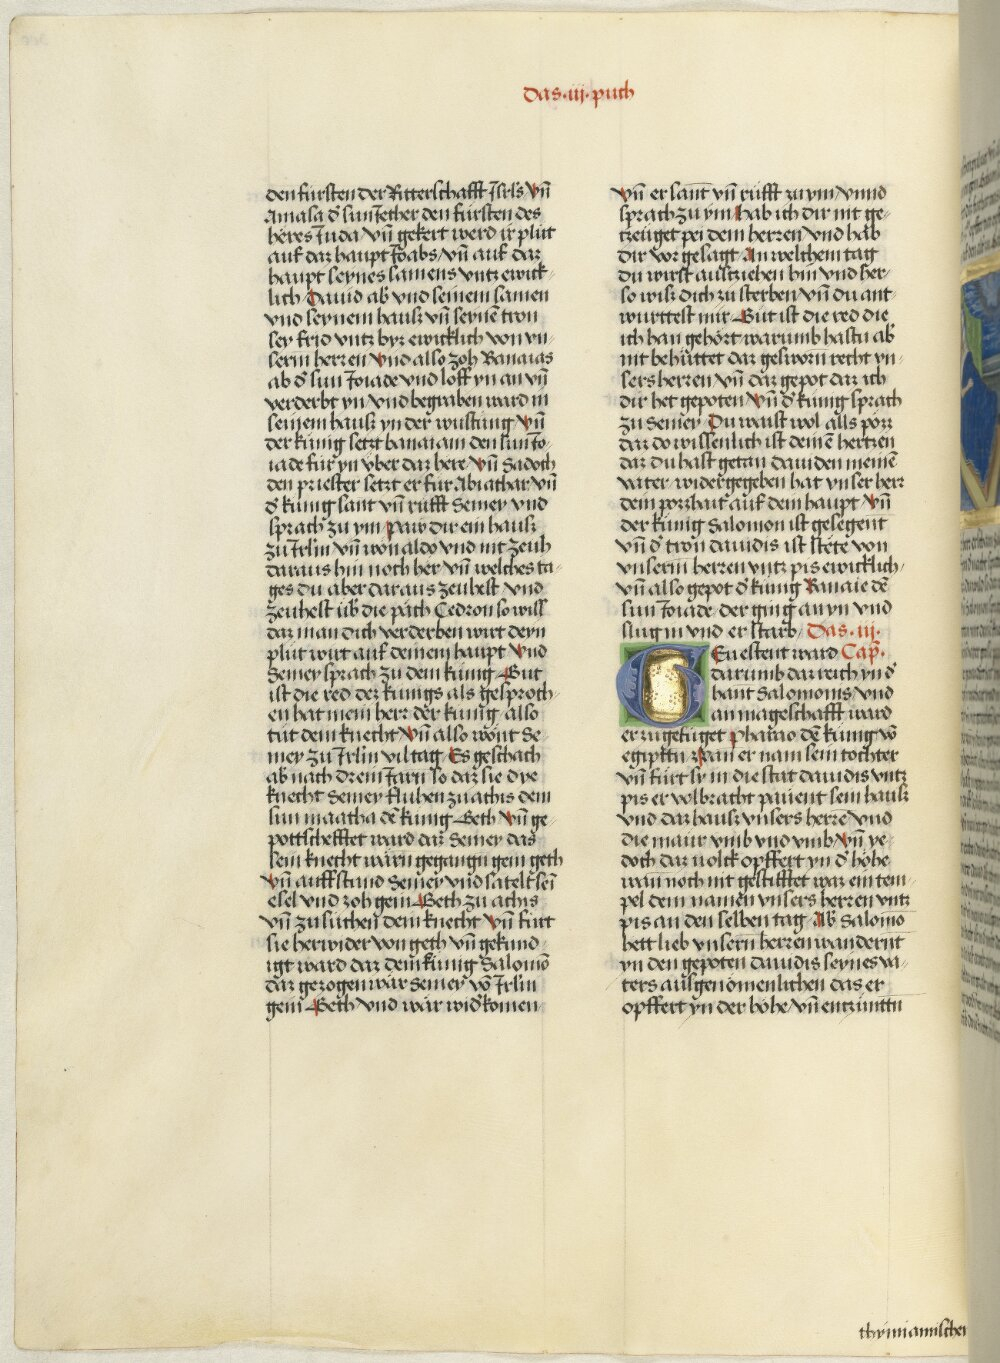 Das·iij·puch
den fursten der Ritterschafft Jsrls Vn̄
Amasa d᾽ sun Jether den fursten des
heres Juda/ vn̄ gekert werd ir plut
auf daz haupt Joabs/ vn̄ auf daz
haupt seynes samens vntz ewick⸗
lich Dauid ab᾽ vnd seinem samen
vnd seynem hausz vn̄ seynē tron
sey frid vntz byz ewicklich von vn⸗
serm herren Vnd also zoh Banaias
ab d᾽ sun Joiade vnd loff yn an vn̄
verderbt yn/ vnd begraben ward in
seinem hausz yn der wustung/ Vn̄
der kunig setzt banaiam den sun Jo⸗
iade fur yn vber daz here/ Vn̄ Sadoch
den priester setzt er fur Abiathar/ vn̄
d᾽ kunig sant vn̄ rufft Semey vnd
sprach zu ym Paw dir ein hausz
zu Jrl̄m vn̄ won aldo vnd nit zeuh
daraus hin noch her/ vn̄ welches ta⸗
ges du aber daraus zeuhest/ vnd
zeuhest ub᾽ die pach Cedron so will
daz man dich verderben wirt deyn
plut wirt auf deinem haupt Vnd
Semey sprach zu dem kunig Gut
ist die red dez kunigs als gesproch⸗
en hat mein herr der kunig/ also
tut dein knecht/ Vn̄ also wont Se⸗
mey zu Jrl̄m vil tag/ Es geschach
ab᾽ nach drein Jarn so daz sie dye
knecht Semey fluhen zu achis dem
sun maatha dē kunig Geth/ Vn̄ ge⸗
pottschefftet ward daz Semey das
sein knecht warn gegangn gein geth
Vn̄ auffstund Semey vnd satelt sei᷑
esel vnd zoh gein Geth zu achis
vn̄ zusuchen dem knecht/ Vn̄ furt
sie herwider von geth/ vn̄ gekund⸗
igt ward daz dem kunig Salomō
daz gezogen war Semey vō Jrl̄m
gein Geth/ vnd wär wid᾽komen
Vn̄ er sant vn̄ rufft zu ym/ vnnd
sprach zu ym Hab ich dir nit ge⸗
tzeuget pei dem herren vnd hab
dir vor gesagt/ An welchem tag
du wirst ausziehen hin vnd her⸗
so wisz dich zu sterben/ vn̄ du ant⸗
wurttest mir Gut ist die red die
ich han gehört warumb hastu ab᾽
nit behüttet daz gesworn recht vn⸗
sers herren vn̄ daz gepot daz ich
dir het gepoten/ Vn̄ d᾽ kunig sprach
zu Semey/ Du waist wol alls pözz
daz do wissenlich ist deinē hertzen
daz du hast getan dauiden meinē
vater/ widergegeben hat vnser herr
dein pozzhait auf dein haupt/ Vn̄
der kunig Salomon ist gesegent
vn̄ d᾽ tron dauidis ist stete von
vnserm herren vntz pis ewicklich⸗
vn̄ also gepot d᾽ kunig Banaie dē
sun Joiade/ der ging an yn vnd
slug in vnd er starb Das·iij·
GEuestent ward Cap̄·
darumb daz reich yn d᾽
hant Salomonis/ vnd
an mageschafft ward
er zugefuget Pharao dē kunig vō
egiptn̄/ Wan er nam sein tochter
vn̄ furt sy in die stat dauidis vntz
pis er volbracht pauent sein hausz
vnd daz hausz vnsers herrē vnd
die maur vmb vnd vmb/ Vn̄ ye⸗
doch daz uolck opffert yn d᾽ höhe
wan̄ noch nit gestifftet war ein tem⸗
pel dem namen vnsers herren vntz
pis an den selben tag/ Ab᾽ Salomō
hett lieb vnsern herren wandernt
yn den gepoten dauidis seynes va⸗
ters auszgenomenlichen das er
opffert yn der höhe/ vn̄ entzuntn̄
thymiamischer